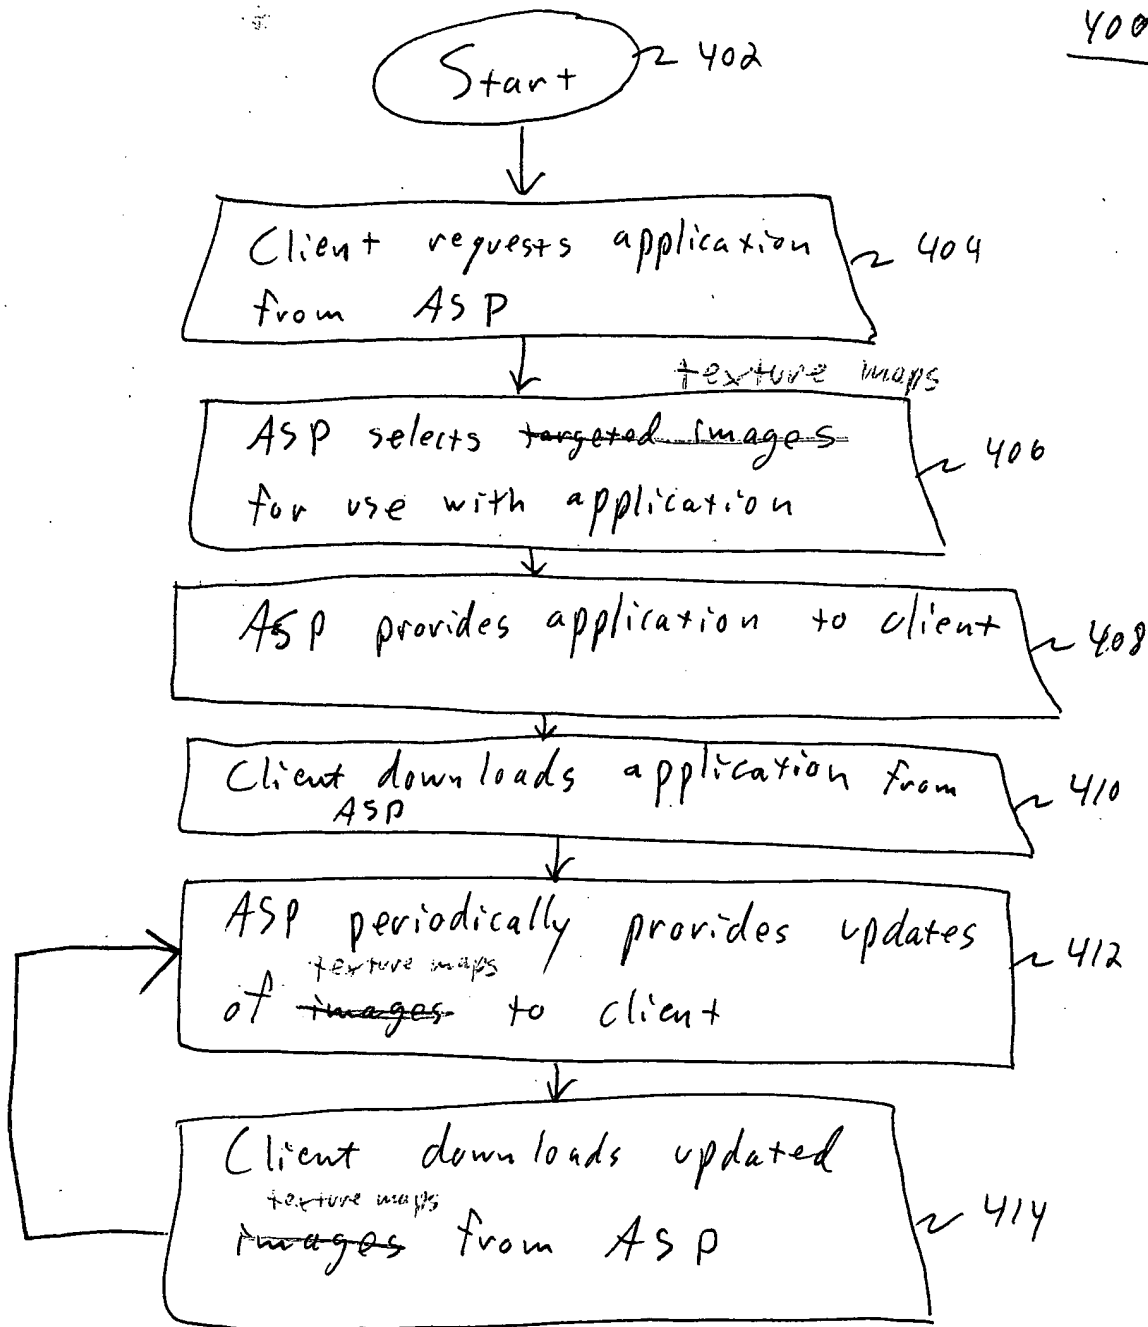 400
Start 402
Client requests application 404
from ASP
texture maps
ASP selects targeted images 406
for use with application
ASP provides application to client 408
Client downloads application from 410
ASP
ASP periodically provides updates 412
texture maps
of images to client
Client downloads updated
texture maps 414
images from ASP